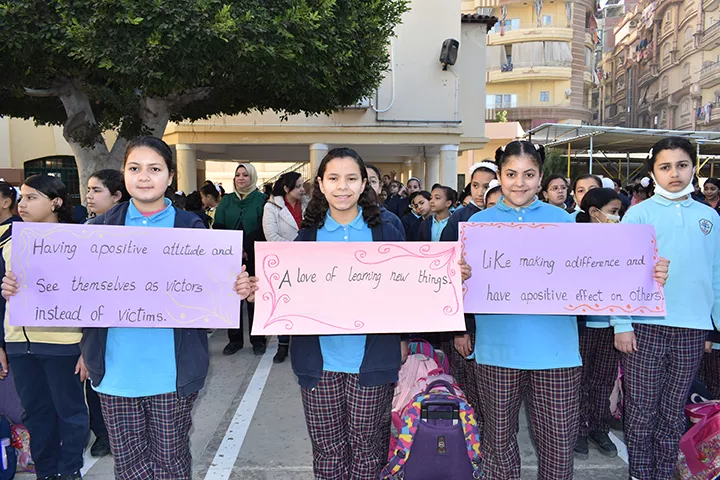 Having apositive attitude and
See themselves as victors
instead of victims.
A love of learning new things.
Like making adifference and
have apositive effect on others.